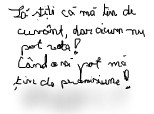 Să știi că mă țin de
cuvânt, dar acum nu
pot veta!
Când o să pot mă
țin de promisiune!